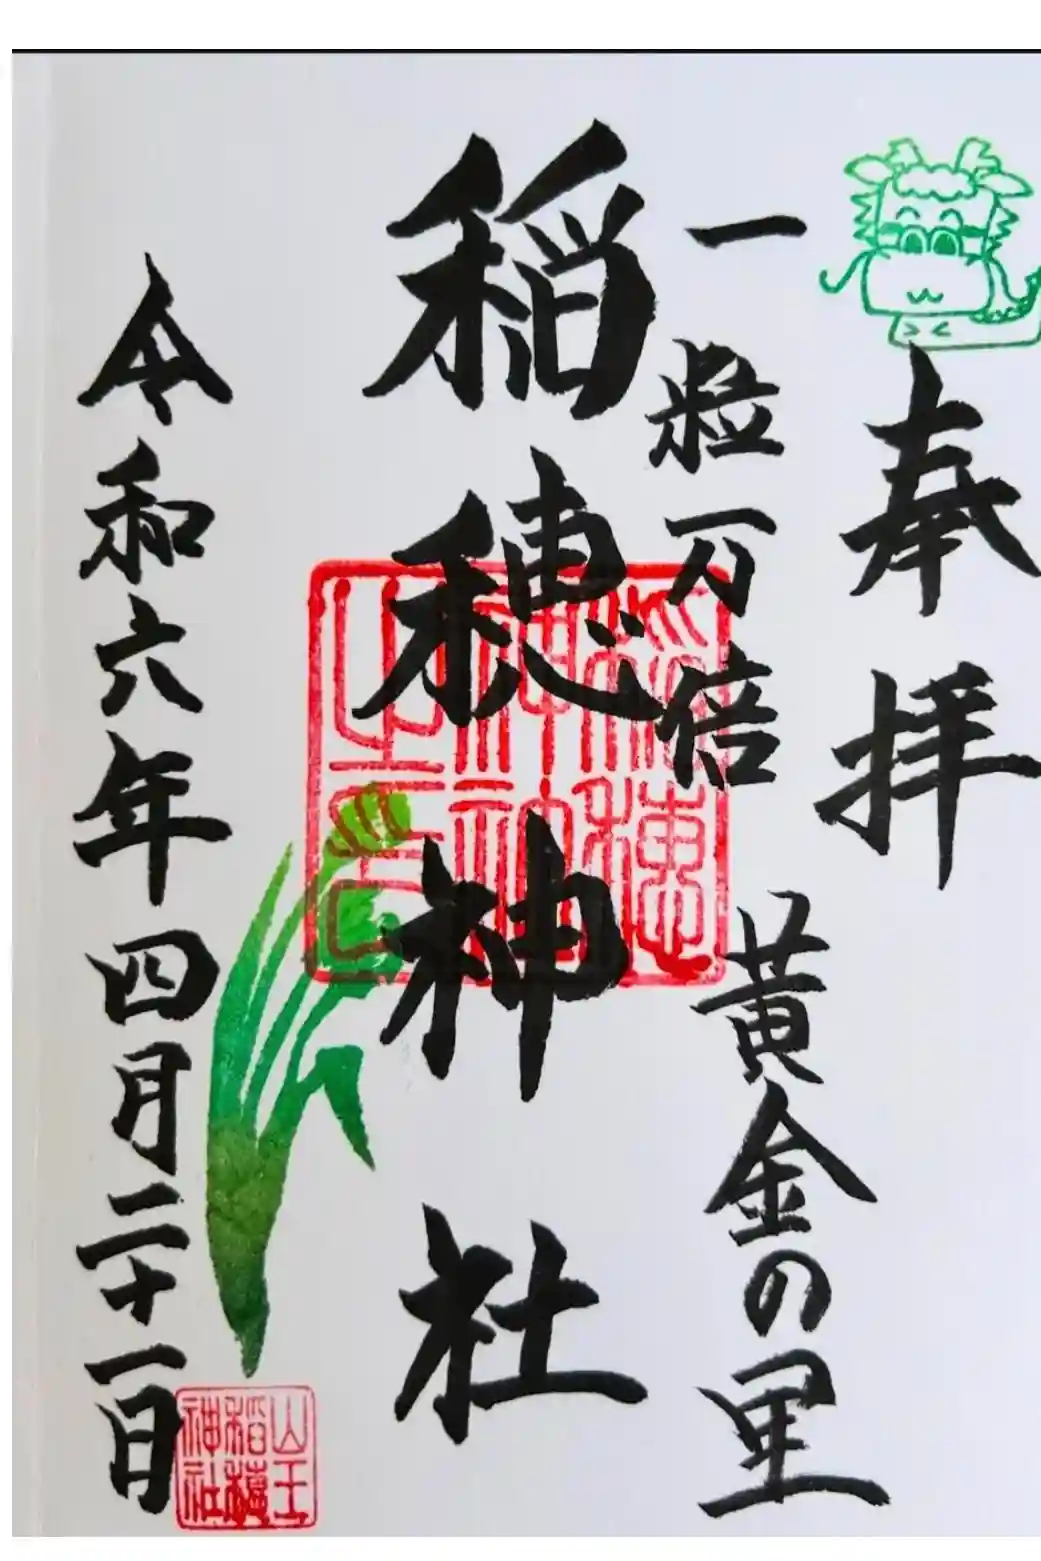 奉拝
一粒万倍
黄金の里
稲穂神社
令和六年四月二十一日
稲穂神社之印
山王稲穂神社